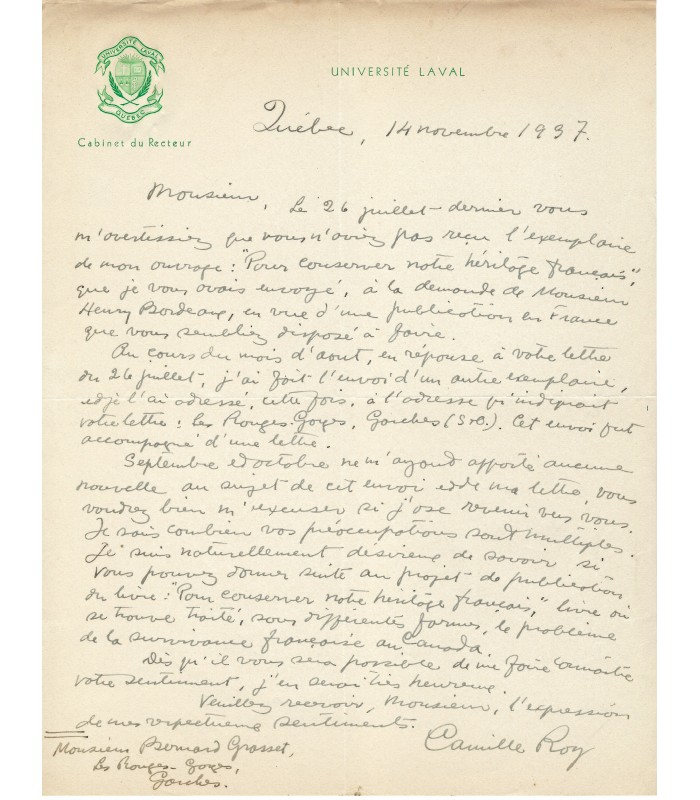 UNIVERSITÉ LAVAL
QUÉBEC
Cabinet du Recteur
UNIVERSITÉ LAVAL
Québec, 14 novembre 1937.
Monsieur,
Le 26 juillet dernier vous
m'avertissiez que vous n'aviez pas reçu l'exemplaire
de mon ouvrage : "Pour conserver notre héritage français",
que je vous avais envoyé, à la demande de Monsieur
Henry Bordeaux, en vue d'une publication en France
que vous sembliez disposé à faire.
Au cours du mois d'aout, en réponse à votre lettre
du 26 juillet, j'ai fait l'envoi d'un autre exemplaire,
et je l'ai adressé, cette fois, à l'adresse qu'indiquait
votre lettre : Les Rouges-Gorges, Garches (S-O). Cet envoi fut
accompagné d'une lettre.
Septembre et octobre ne m'ayant apporté aucune
nouvelle au sujet de cet envoi et de ma lettre, vous
voudrez bien m'excuser si j'ose revenir vers vous.
Je sais combien vos préoccupations sont multiples.
Je suis naturellement désireux de savoir si
vous pouvez donner suite au projet de publication
du livre : "Pour conserver notre héritage français," livre où
se trouve traité, sous différentes formes, le problème
de la survivance française au Canada.
Dès qu'il vous sera possible de me faire connaître
votre sentiment, j'en serai très heureux.
Veuillez recevoir, Monsieur, l'expression
de mes respectueux sentiments.
Camille Roy
Monsieur Bernard Grasset,
Les Rouges-Gorges,
Garches.